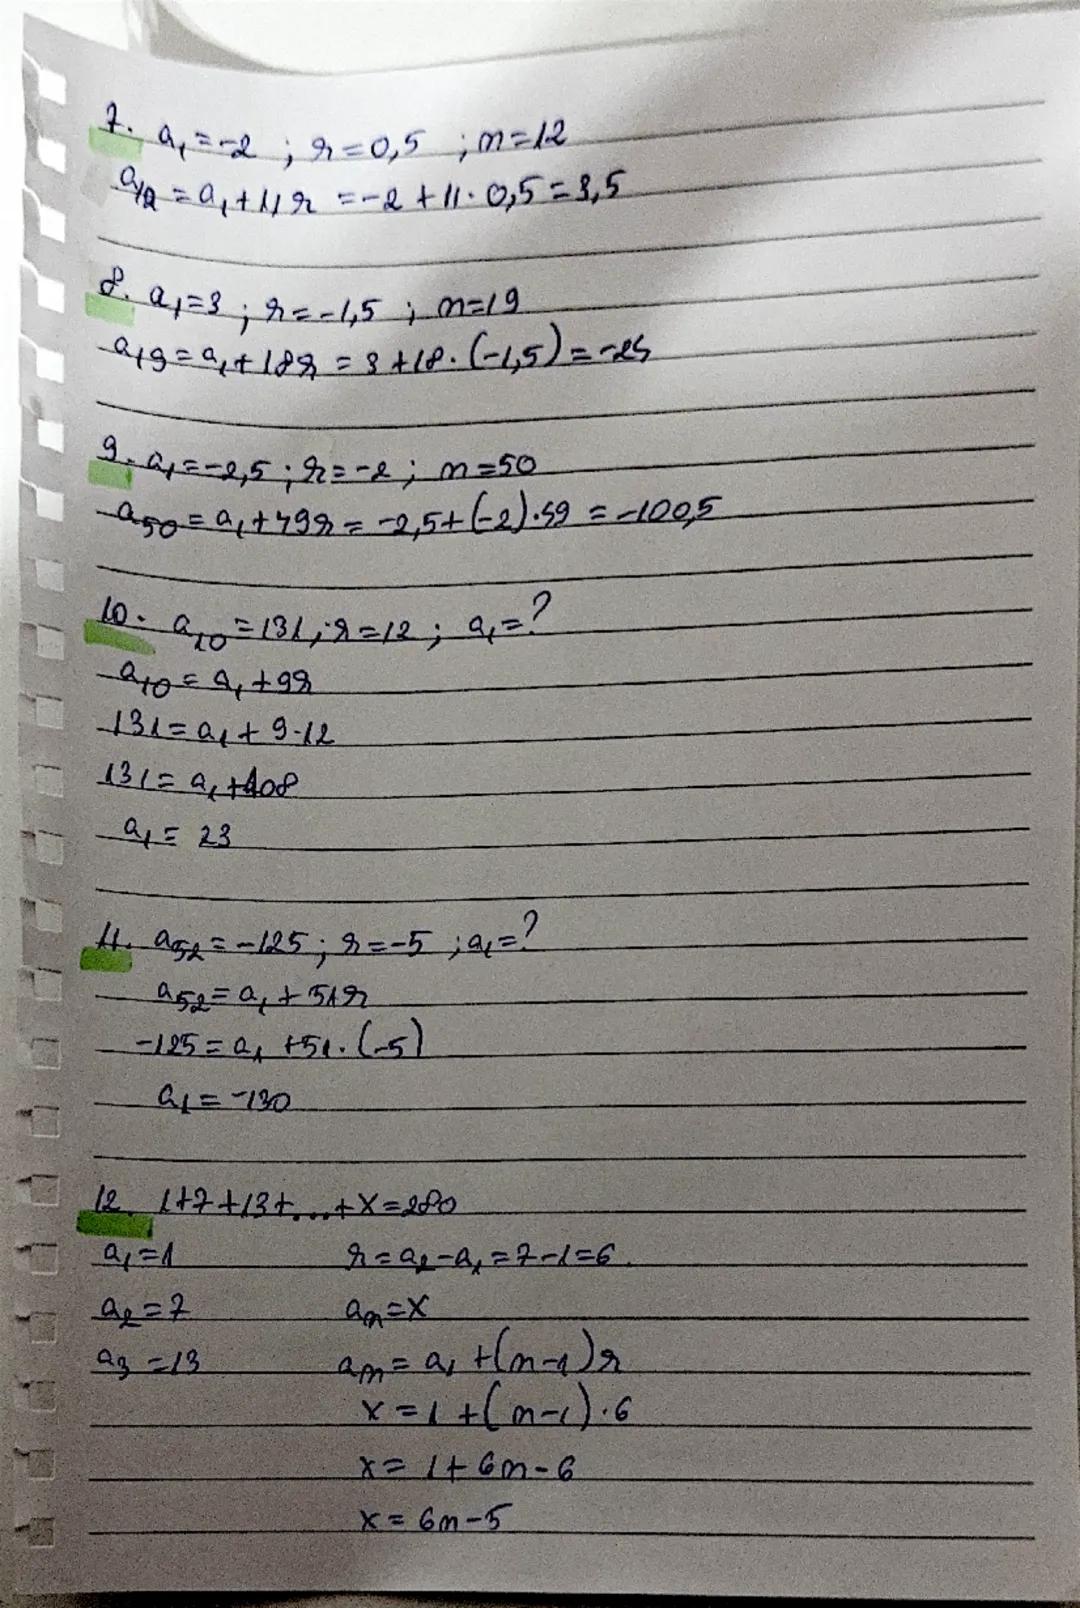 7. a₁ = -2 ; r = 0,5 ; n = 12
a₁₂ = a₁ + 11r = -2 + 11 · 0,5 = 3,5
8. a₁ = 3 ; r = -1,5 ; n = 19
a₁₉ = a₁ + 18r = 3 + 18 · (-1,5) = -24
9. a₁ = -2,5 ; r = -2 ; n = 50
a₅₀ = a₁ + 49r = -2,5 + (-2) · 49 = -100,5
10. a₁₀ = 131 ; r = 12 ; a₁ = ?
a₁₀ = a₁ + 9r
131 = a₁ + 9 · 12
131 = a₁ + 108
a₁ = 23
11. a₅₂ = -125 ; r = -5 ; a₁ = ?
a₅₂ = a₁ + 51r
-125 = a₁ + 51 · (-5)
a₁ = -130
12. 1 + 7 + 13 + ... + x = 280
a₁ = 1 r = a₂ - a₁ = 7 - 1 = 6.
a₂ = 7 aₙ = x
a₃ = 13 aₙ = a₁ + (n-1)r
x = 1 + (n-1) · 6
x = 1 + 6n - 6
x = 6n - 5